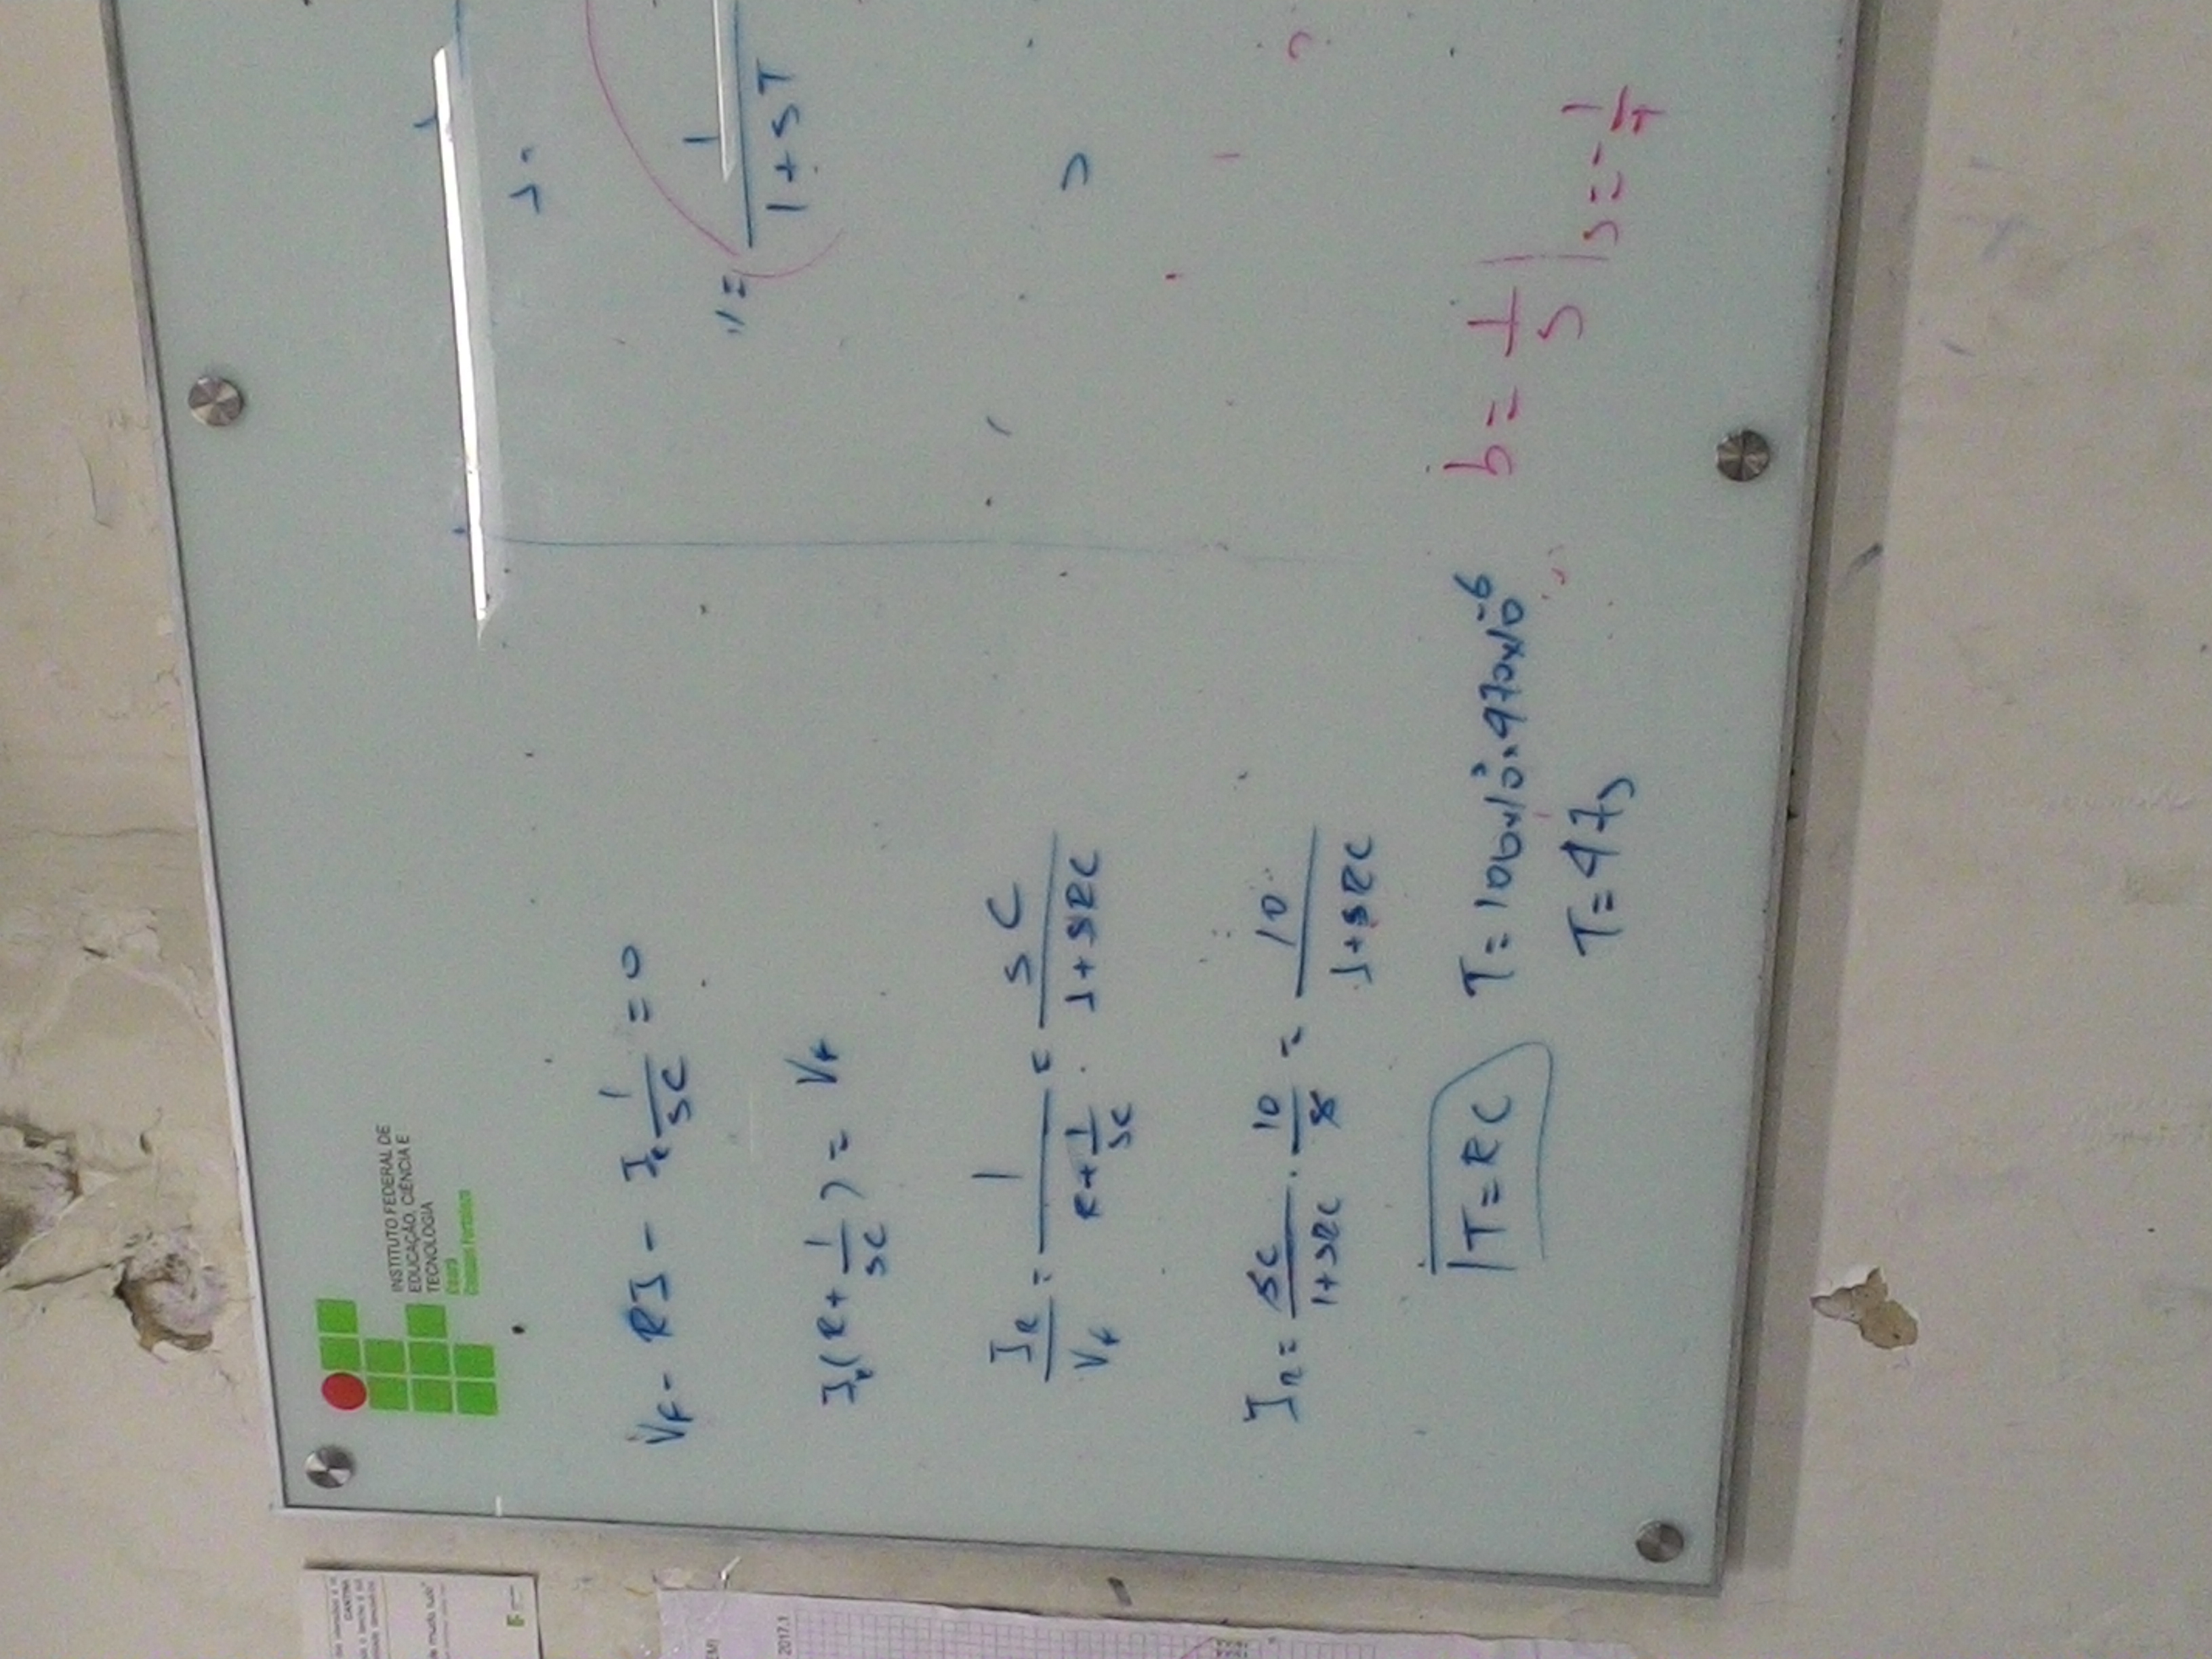 CANTINA
de muda tudo"
2017.1
INSTITUTO FEDERAL DE
EDUCAÇÃO, CIÊNCIA E
TECNOLOGIA
Ceará
Campus Fortaleza
V_F - RI - I_R 1/SC = 0
I_R (R + 1/SC) = V_F
I_R/V_F = 1/(R + 1/SC) = SC/(1 + SRC)
I_R = SC/(1 + SRC) · 10/S = 10/(1 + SRC)
T = RC
T = 100x10³ x 470x10⁻⁶
T = 47s
1/(1 + ST)
b = 1/S | S = -1/T